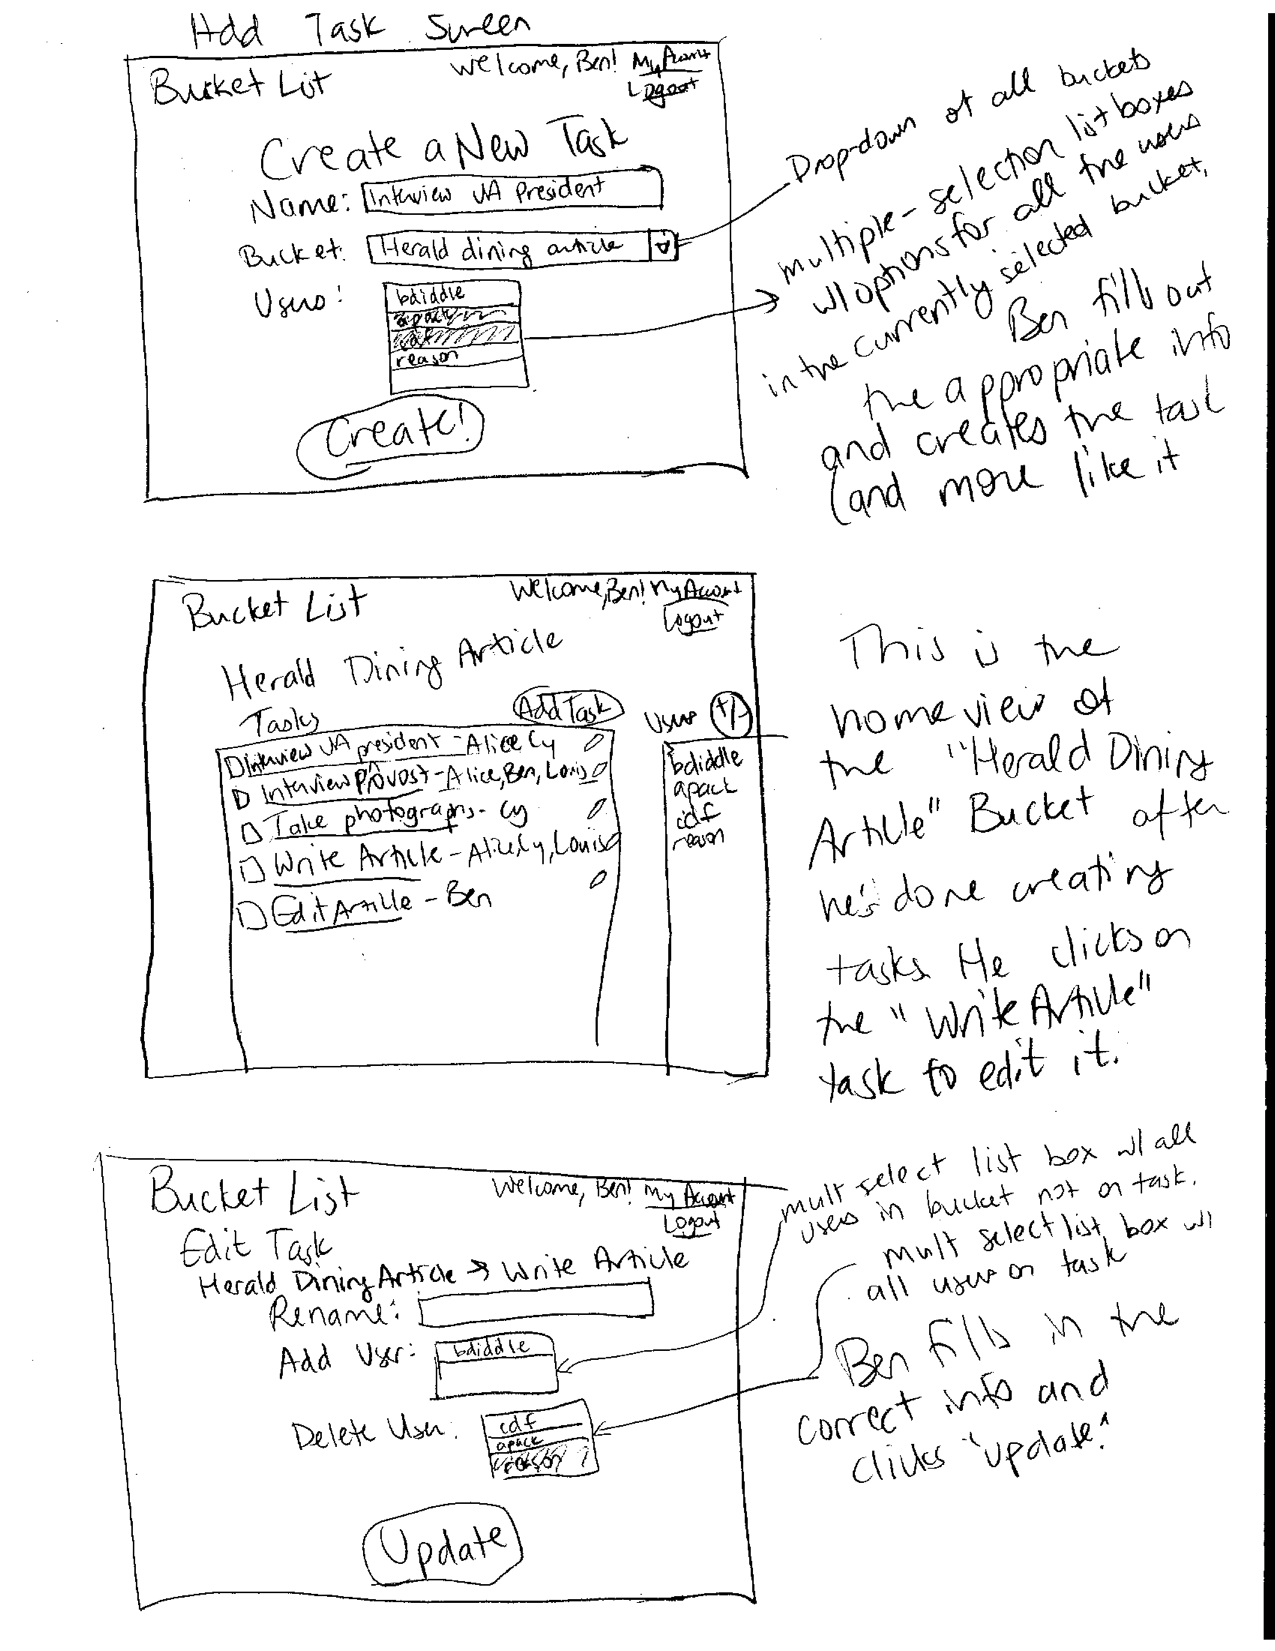 Add Task Screen
Bucket List
Welcome, Ben! My Account
Logout
Create a New Task
Name: Interview VA President
Bucket: Herald dining article
Users:
bdiddle
apack
cdf
reason
Create!
Drop-down of all buckets
multiple-selection list boxes
w/ options for all the users
in the currently selected bucket.
Ben fills out
the appropriate info
and creates the task
(and more like it
Bucket List
Welcome, Ben! My Account
Logout
Herald Dining Article
Tasks
Add Task
Users +/-
Interview VA president - Alice Cy
Interview Provost - Alice, Ben, Louis
Take photographs - Cy
Write Article - Alice, Cy, Louis
Edit Article - Ben
bdiddle
apack
cdf
reason
This is the
home view of
the "Herald Dining
Article" Bucket after
he's done creating
tasks. He clicks on
the "Write Article"
task to edit it.
Bucket List
Welcome, Ben! My Account
Logout
Edit Task
Herald Dining Article → Write Article
Rename:
Add User:
bdiddle
Delete User:
cdf
apack
reason
Update
mult select list box w/ all
users in bucket not on task.
mult select list box w/
all users on task
Ben fills in the
correct info and
clicks "update."